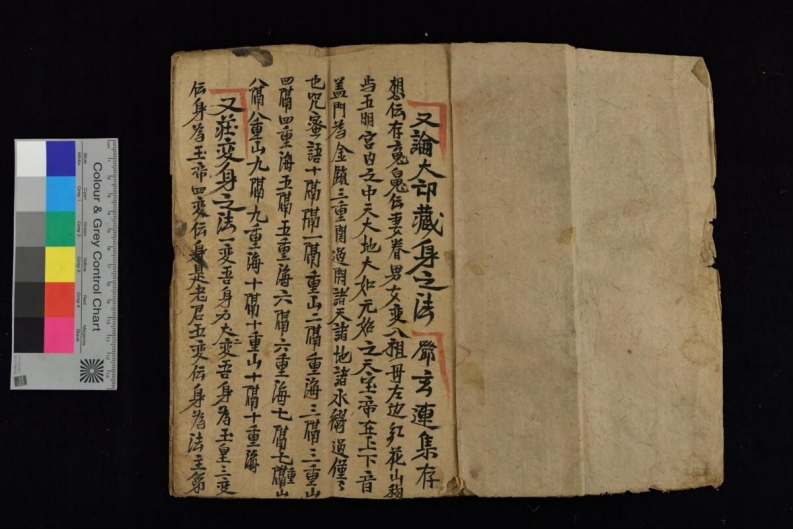 又論大印藏身之法 鄧玄連集存
想伝存鬼伝妻眷男女变入祖母左边紅花山
当玉明宮内之中天大地大如元始之天宝帝在上下音
盖門為金鎖三重関過開諸天諸地諸水過僅々
也咒蜜語十隔隔一隔一重山二隔二重海三隔三重山
四隔四重海五隔五重海六隔六重海七隔七重山
八隔八重山九隔九重海十隔十重山十隔十重海
又莊变身之法一变吾身为大变吾身為玉皇三变
伝身為玉帝四变伝身是老君五变伝身為法主第
Colour & Grey Control Chart